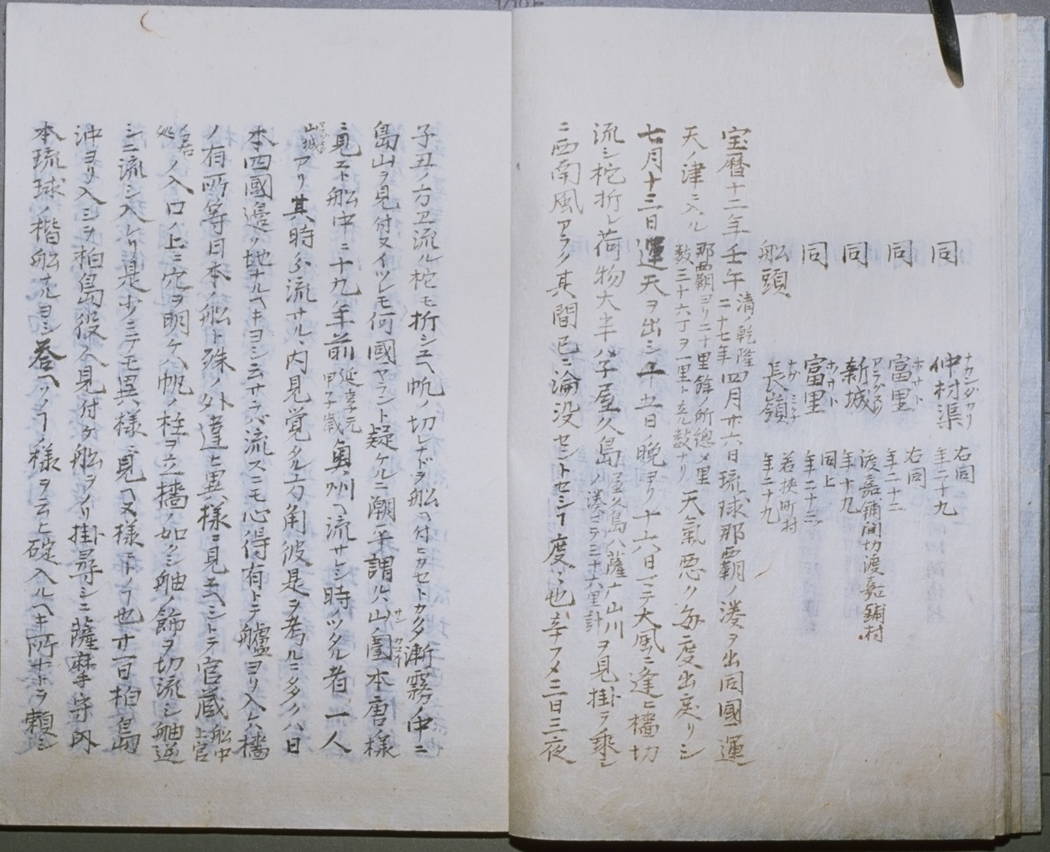 同 仲村渠 ナカンダカリ 右同 年二十九
同 富里 右同 年二十三
同 新城 渡嘉鋪間切渡嘉鋪村 年十九
同 富里 同上 年二十三
船頭 長嶺 若狭町村 年二十九
宝暦十二年壬午 清ノ乾隆二十七年 四月廿六日琉球那覇ノ湊ヲ出同國運
天ノ津ニ入ル 那覇ヨリ二十里餘ノ所總〆里数三十六丁ヲ一里ト立ル数ナリ 天氣悪ク毎度出戻リシ
七月十三日運天ヲ出シニ十五日晩ヨリ十六日マテ大風ニ逢ヒ檣切
流シ柁折レ荷物大半ハ子屋久島 屋久島ハ薩广山川ノ湊マテ三十六里計 ヲ見掛ヲ乗
ニ西南風アラク其間已ニ淪没セントセシ度々也辛フメ三日三夜
子丑ノ方エ流ル柁モ折シユヘ帆ノ切レナドヲ船ヘ付ヒカセトカク漸霧ノ中ニ
島山ヲ見付又イツレモ何國ヤラント疑ケルニ潮平謂ル、山圍本唐様
ニ見エト船中ニ十九年前 延享元甲子歳 奥州ヘ流サレシ時ノツタル者一人
山城 アリ其時分流サル、内見覚タル方角彼是ヲ考ルニ多クハ日
本四國邊ノ地ナルヘキヨシ云サラバ流スニモ心得有トテ艫ヨリ入ハ檣
ノ有所等日本ノ船ト殊ノ外違ヒ異様ニ見エヘシトテ官蔵 船中上官
ノ入口ノ上ニ穴ヲ明ケハ帆ノ柱ヲ立檣ノ如クシ舳ノ飾ヲ切流シ舳逆
シニ流シ入レリ是少ニテモ異様ニ見ヘヌ様ニトノ也廿一日柏島
沖ヨリ入シヲ柏島役人見付ケ船ヲノリ掛尋シニ薩摩守内
本琉球ノ楷船ナルヨシ答ヘノリ様ヲ云ヒ碇入ルヘキ所ナトヲ頼シ